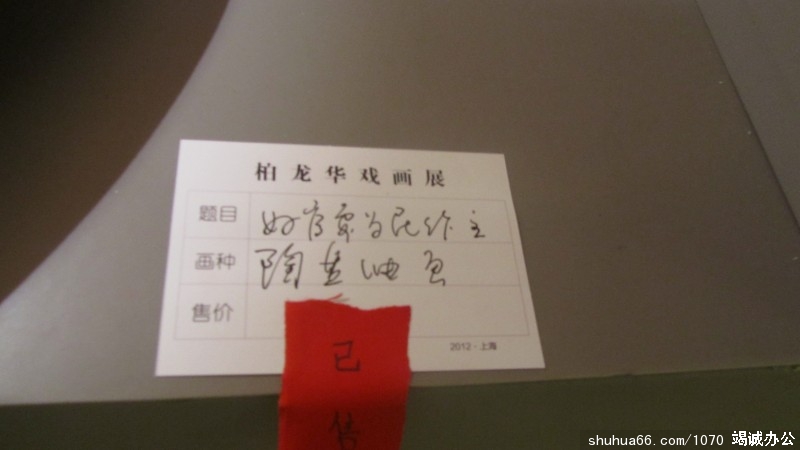 柏龙华戏画展
题目 好官要为民作主
画种 陶瓷油画
售价
2012-上海
已
售
shuhua66.com/1070 竭诚办公